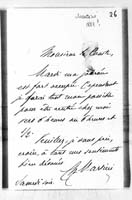 26
Monsieur le Comte,
Mardi ma journée
est fort remplie. Cependant
je ferai tout mon possible
pour être rentré chez moi
vers 6 heures ou 6 heures et
1/2.
Veuillez, je vous prie,
croire à tous mes sentiments
bien dévoués
Samedi soir.